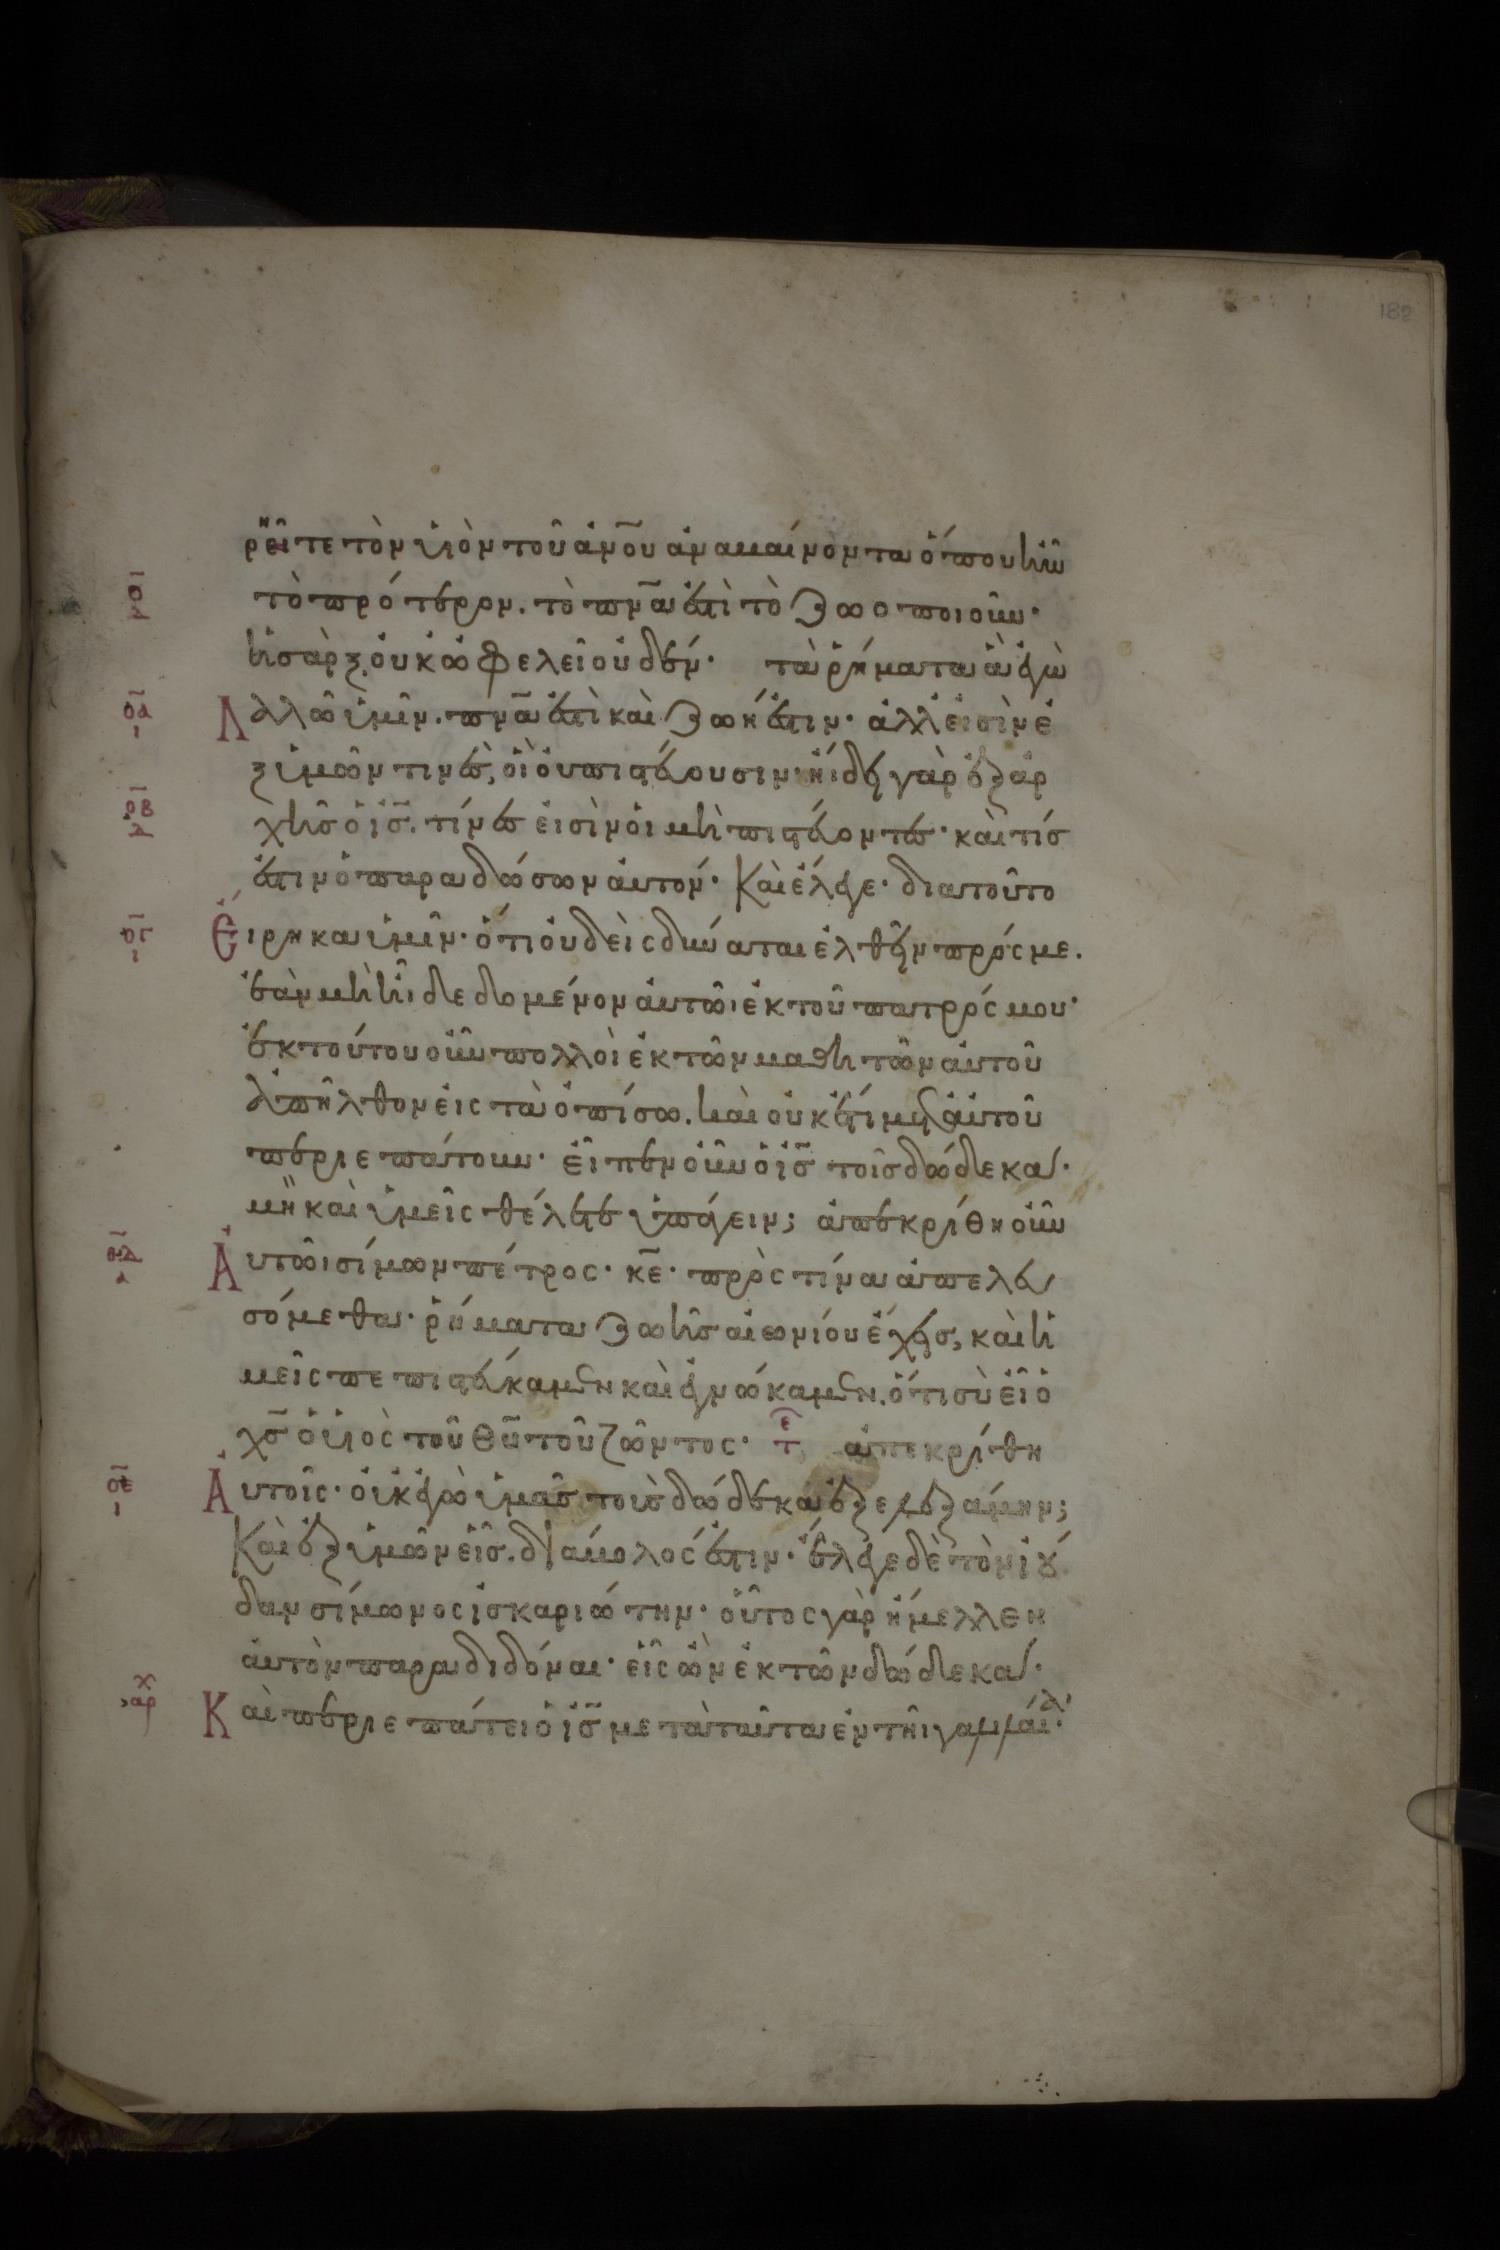 182
ρεῖτε τὸν υἱὸν τοῦ ἀν̅ο̅υ ἀναβαίνοντα ὅπου ἦν
τὸ πρότερον. τὸ πν̅α ἐστὶ τὸ ζωοποιοῦν·
ἡ σὰρξ οὐκ ὠφελεῖ οὐδέν· τὰ ῥήματα ἃ ἐγὼ
λαλῶ ὑμῖν. πν̅α ἐστὶ καὶ ζωή ἐστιν· ἀλλ' εἰσὶν ἐ
ξ ὑμῶν τινὲς, οἳ οὐ πιστεύουσιν· ἤιδει γὰρ ἐξ ἀρ
χῆς ὁ ι̅ς̅. τίνες εἰσὶν οἱ μὴ πιστεύοντες· καὶ τίς
ἐστιν ὁ παραδώσων αὐτόν· Καὶ ἔλεγε· διατοῦτο
Εἴρηκα ὑμῖν· ὅτι οὐδεὶς δύναται ἐλθεῖν πρός με.
ἐὰν μὴ ἦι δεδομένον αὐτῶι ἐκ τοῦ πατρός μου·
ἐκ τούτου οὖν πολλοὶ ἐκ τῶν μαθητῶν αὐτοῦ
ἀπῆλθον εἰς τὰ ὀπίσω. καὶ οὐκέτι μετ' αὐτοῦ
περιεπάτουν· εἶπεν οὖν ὁ ι̅ς̅ τοῖς δώδεκα·
μὴ καὶ ὑμεῖς θέλετε ὑπάγειν; ἀπεκρίθη οὖν
Αὐτῶι σίμων πέτρος· κ̅ε̅· πρὸς τίνα ἀπελευ
σόμεθα· ῥήματα ζωῆς αἰωνίου ἔχεις, καὶ ἡ
μεῖς πεπιστεύκαμεν καὶ ἐγνώκαμεν. ὅτι σὺ εἶ ὁ
χ̅ς̅ ὁ υἱὸς τοῦ θ̅υ̅ τοῦ ζῶντος· τε ἀπεκρίθη
Αὐτοῖς· οὐκ ἐγὼ ὑμᾶς τοὺς δώδεκα ἐξελεξάμην;
Καὶ ἐξ ὑμῶν εἷς. διάβολός ἐστιν· ἔλεγε δὲ τὸν ἰού
δαν σίμωνος ἰσκαριώτην· οὗτος γὰρ ἤμελλεν
αὐτὸν παραδιδόναι· εἷς ὢν ἐκ τῶν δώδεκα·
Καὶ περιεπάτει ὁ ι̅ς̅ μετὰ ταῦτα ἐν τῆι γαλιλαί·
ο̅
ο̅α̅
ο̅β̅
ο̅γ̅
ο̅δ̅
ο̅ε̅
ἀρχ